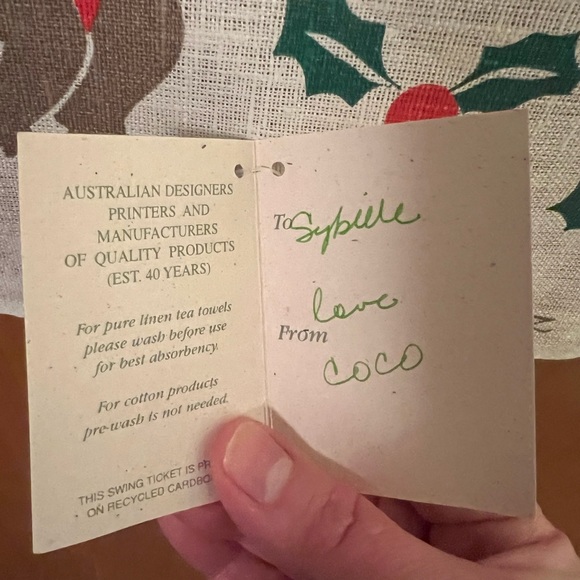 AUSTRALIAN DESIGNERS
PRINTERS AND
MANUFACTURERS
OF QUALITY PRODUCTS
(EST. 40 YEARS)
For pure linen tea towels
please wash before use
for best absorbency.
For cotton products
pre-wash is not needed.
THIS SWING TICKET IS PR
ON RECYCLED CARDBO
To Sybille
love
From
COCO